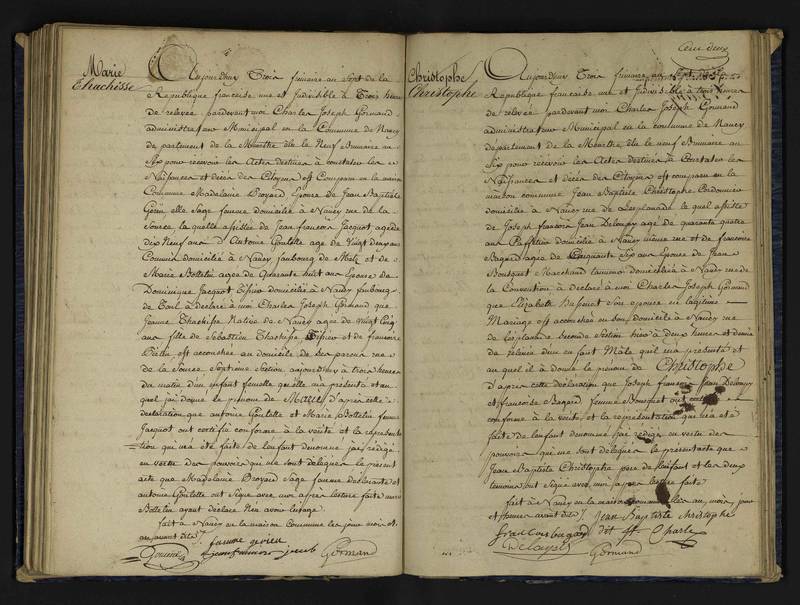 Marie
Thachisse
Aujourd'huy Trois frimaire an Sept de la
Republique francaise une et Indivisible à Trois heures
de relevee pardevant moi Charles Joseph Gormand
administrateur Municipal en la Commune de Nancy
departement de la Meurthe élu le Neuf Brumaire an
Six pour recevoir les Actes destinés à constater les
Naissances et décès des Citoyens est Comparu en la maison
Commune Madelaine Broyard Epouse de Jean Baptiste
elle Sage femme domiciliée à Nancy rue de la
Source, laquelle assistée de Jean francois Jacquot agé de
dix Neuf ans d'Antoine Goulette age de Vingt deux ans
domiciliés à Nancy faubourg de Metz et de
Marie Bottelin agée de Quarante huit ans Epouse de
Dominique Jacquot domiciliée à Nancy faubourg
de Toul a declaré à moi Charles Joseph Gormand que
Jeanne Native de Nancy agée de vingt Cinq
ans fille de Sebastien et de francoise
est accouchée au domicile de ses parens rue
de la Source Septieme Section aujourd'huy à trois heures
du matin d'un enfant femelle quelle ma presenté et au
quel j'ai donné le prenom de Marie d'après cette
declaration que antoine Goulette et Marie Bottelin femme
Jacquot ont certifié conforme à la vérité et la représenta
tion qui m'a été faite de l'enfant denommé j'ai rédigé
en vertu des pouvoirs qui me sont délégués le present
acte que Madelaine Broyard Sage femme declarante et
antoine Goulette ont Signé avec moi apres lecture faite
Bottelin ayant declaré Nen avoir lusage
fait à Nancy en la maison Commune les jour mois et
an avant dits
Gormand
Cent deux
Christophe
Christophe
Aujourd'huy Trois frimaire an Sept de la
Republique francaise une et Indivisible à trois heures
de relevée pardevant moi Charles Joseph Gormand
administrateur Municipal en la commune de Nancy
departement de la Meurthe élu le neuf Brumaire an
Six pour recevoir les Actes destinés à Constater les
Naissances et décès des Citoyens est comparu en la
maison commune Jean Baptiste Christophe Cordonnier
domicilié à Nancy rue de Lesplanade le quel assisté
de Joseph francois Jean Deloupy agé de quarante quatre
ans domicilié à Nancy même rue et de francoise
Bagard agée de Cinquante Six ans Epouse de Jean
Bousquet Marchand domiciliée à Nancy rue de
la Convention à declaré à moi Charles Joseph Gormand
que Elizabeth Son epouse en légitime
Mariage est accouchée en Son domicile à Nancy rue
de Lesplanade seconde Section hier à deux heures et demie
de relevée d'un enfant Mâle quil ma presenté et
au quel il à donné le prenom de Christophe
d'après cette declaration que Joseph francois Jean Deloupy
et francoise Bagard femme Bousquet ont certifié
conforme à la vérité, et la représentation qui ma été
faite de l'enfant denommé j'ai rédigé en vertu des
pouvoirs qui me sont délégués le present acte que
Jean Baptiste Christophe pere de l'enfant et les deux
temoins ont Signé avec moi après lecture faite
fait à Nancy en la maison commune les an, mois, jour
et heures avant dits
Jean Baptiste christophe
Gormand